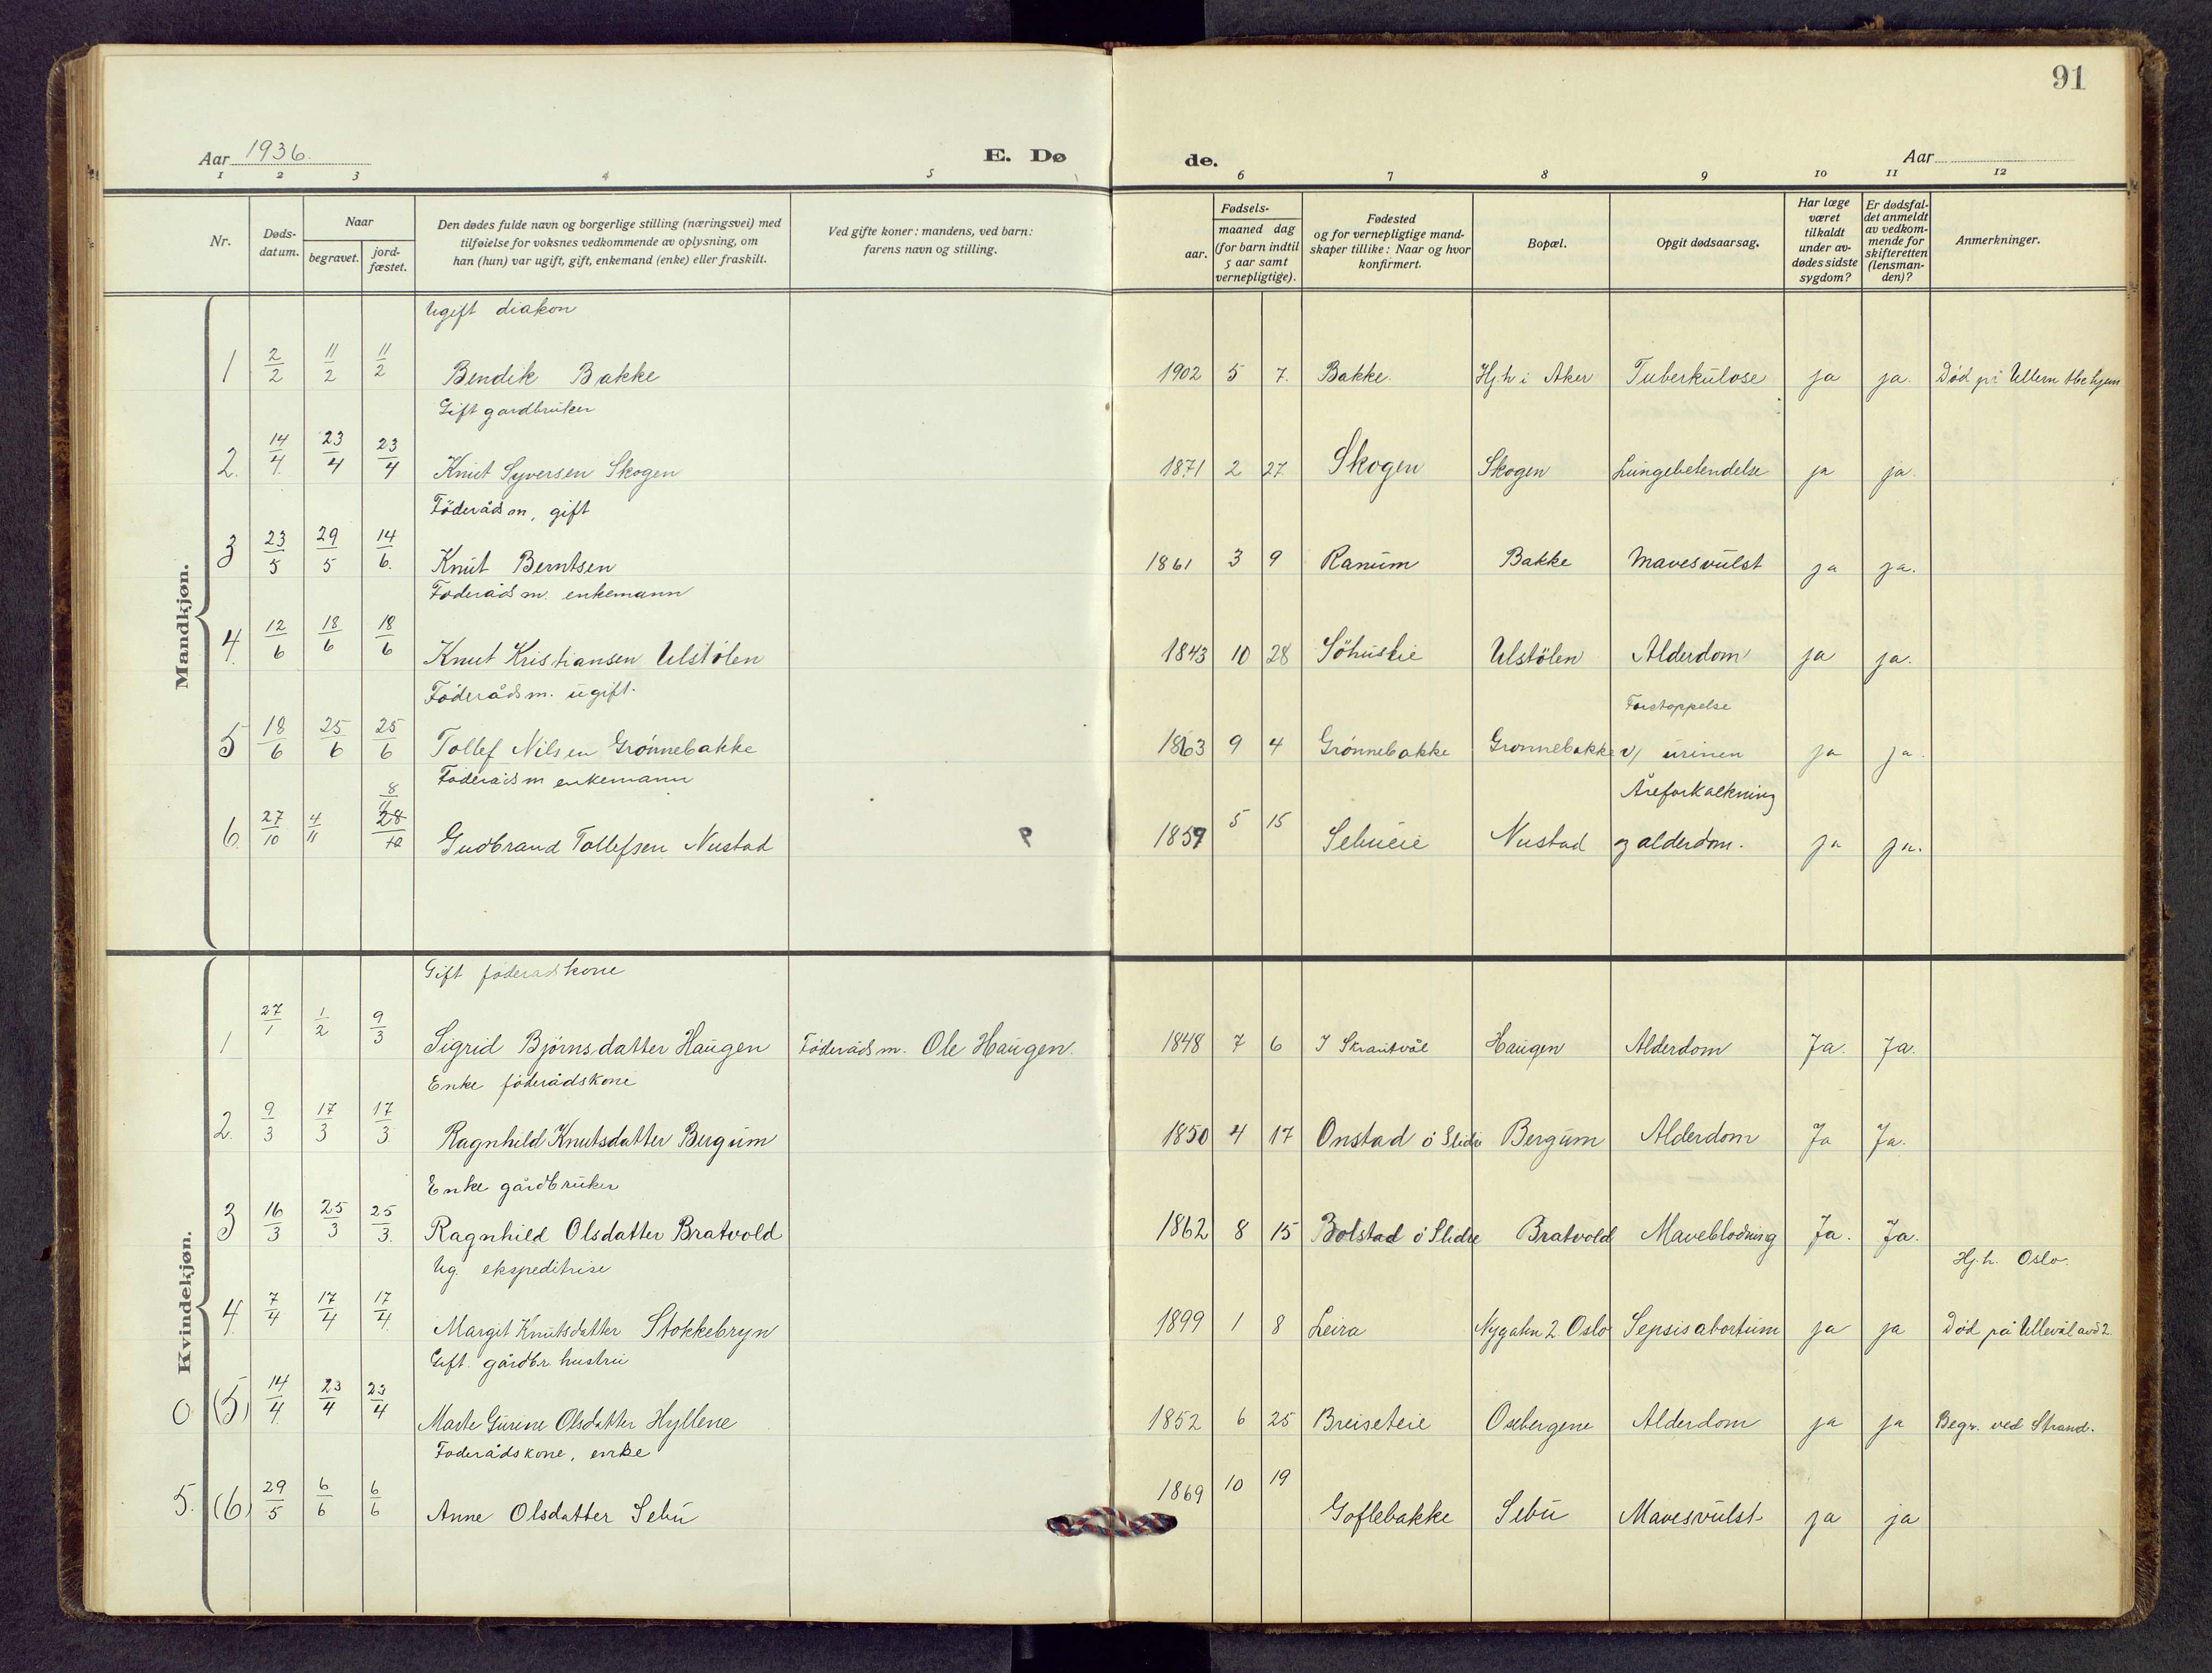 91
Aar 1936.
E. Dø
de.
Aar
1 2 3 4 5 6 7 8 9 10 11 12
Nr.
Døds-
datum.
Naar
begravet.
jord-
fæstet.
Den dødes fulde navn og borgerlige stilling (næringsvei) med
tilføielse for voksnes vedkommende av oplysning, om
han (hun) var ugift, gift, enkemand (enke) eller fraskilt.
Ved gifte koner: mandens, ved barn:
farens navn og stilling.
Fødsels-
aar.
maaned dag
(for barn indtil
5 aar samt
vernepligtige).
Fødested
og for vernepligtige mand-
skaper tillike: Naar og hvor
konfirmert.
Bopæl.
Opgit dødsaarsag.
Har læge
været
tilkaldt
under av-
dødes sidste
sygdom?
Er dødsfal-
det anmeldt
av vedkom-
mende for
skifteretten
(lensman-
den)?
Anmerkninger.
Mandkjøn.
Ugift diakon
1 2/2 11/2 11/2 Bendik Bakke 1902 5 7. Bakke. Hj.h i Aker Tuberkulose ja ja. Død på Ullern tbc hjem
Gift gardbruker
2. 14/4. 23/4 23/4 Knut Syversen Skogen 1871 2 27. Skogen Skogen Lungebetendelse ja ja.
Föderådsm, gift
3 23/5 29/5 14/6. Knut Berntsen 1861 3 9 Ranum Bakke Mavesvulst ja ja.
Föderådsm. enkemann
4. 12/6 18/6 18/6 Knut Kristiansen Ulstölen 1843 10 28 Ulstölen Alderdom ja ja.
Föderådsm. ugift.
Forstoppelse
5 18/6 25/6 25/6 Tollef Nilsen Grönnebakke 1863 9 4 Grönnebakke Gronnebakke v/ urinen ja ja.
Föderådsm enkemann
8/11
Åreforkalkning
6. 27/10 4/11 28/10 Gudbrand Tollefsen Nustad P 1859 5 15 Sebueie Nustad og alderdom. ja ja.
Kvindekjøn.
Gift föderadskone
1 27/1 1/2 9/3 Sigrid Björnsdatter Haugen Föderådsm. Ole Haugen. 1848 7 6 I Skrautvål Haugen Alderdom Ja. Ja.
Enke föderådskone
2. 9/3 17/3 17/3. Ragnhild Knutsdatter Bergum 1850 4 17 Onstad ö Slidre Bergum Alderdom Ja Ja.
Enke gårdbruker
3 16/3 25/3 25/3. Ragnhild Olsdatter Bratvold 1862 8 15 Bolstad ö Slidre Bratvold Maveblodning Ja. Ja.
Ug. ekspeditrise
Hj.h. Oslo.
4. 7/4 17/4 17/4. Margit Knutsdatter Stokkebryn 1899 1 8 Leira Nygaten 2 Oslo Sepsis abortum ja ja Död på Ullevål avd 2.
Gift. gårdbr hustru
0 (5) 14/4. 23/4 23/4 Marte Gurine Olsdatter Hyllene 1852 6 25 Breiseteie Oxbergene Alderdom ja ja Begr. ved Strand.
Foderådskone, enke
5. (6) 29/5 6/6 6/6 Anne Olsdatter Sebu 1869 10 19 Goflebakke Sebu Mavesvulst ja ja